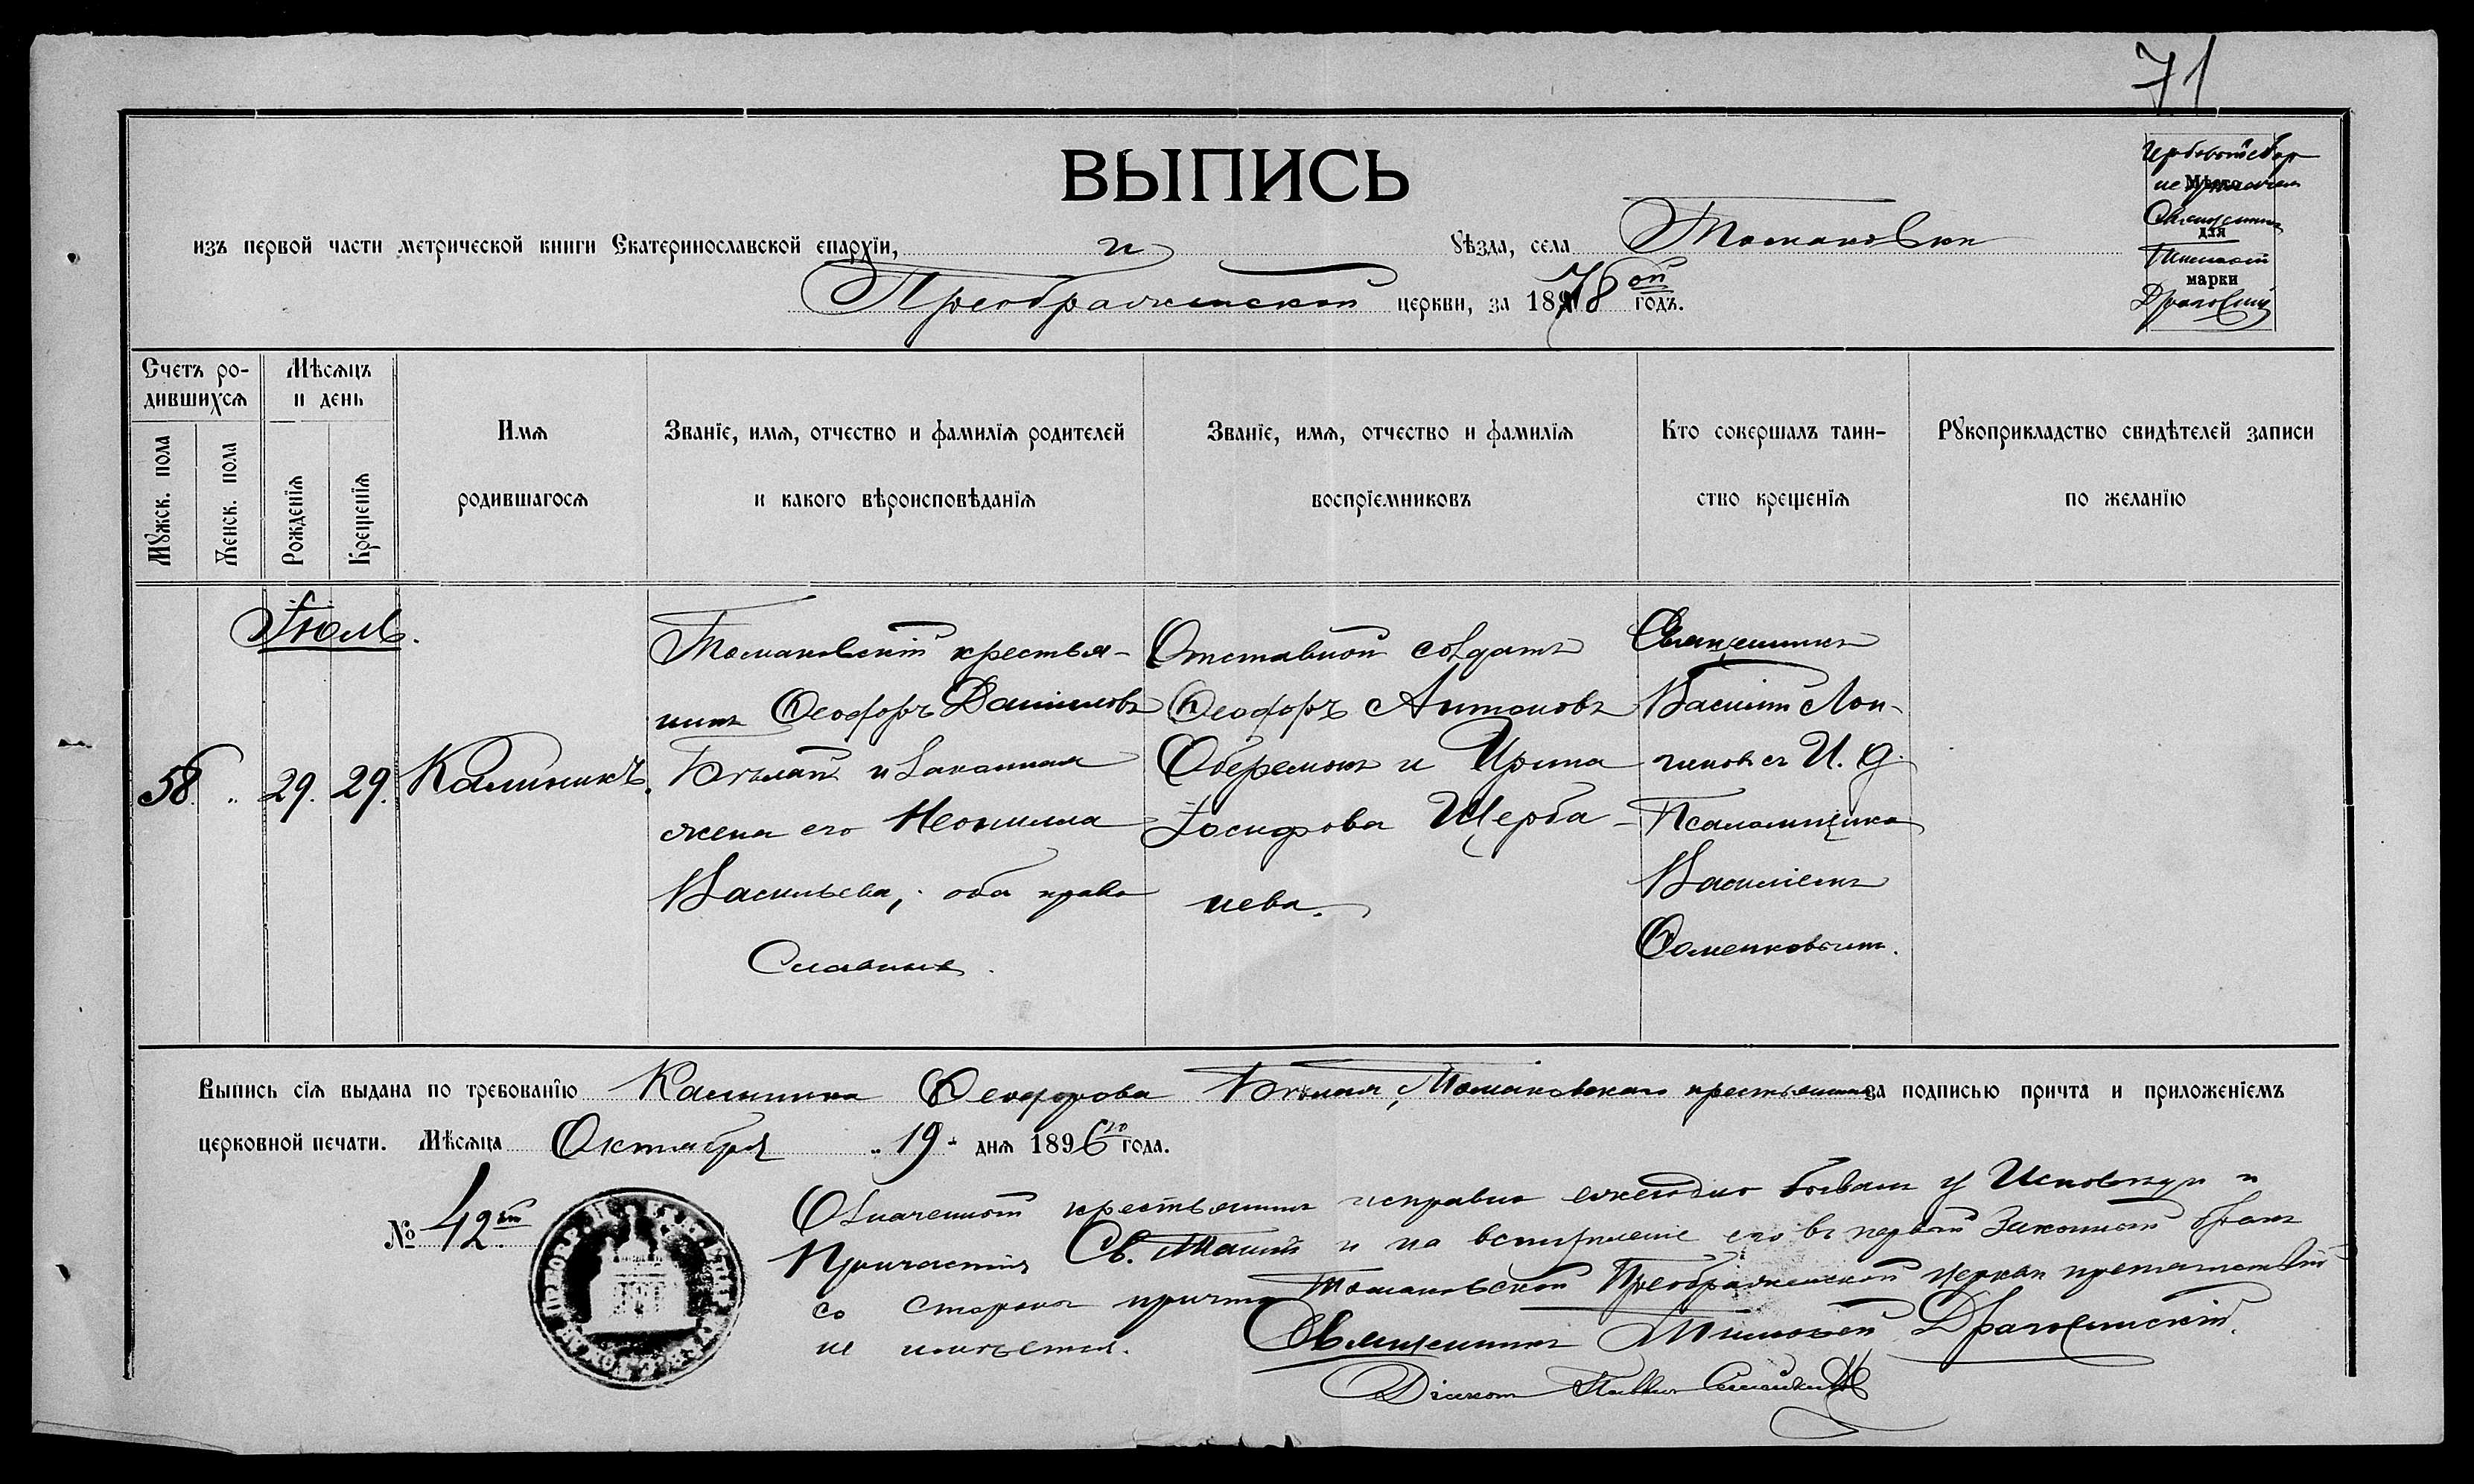 71
ВЫПИСЬ
изъ первой части метрической книги Екатеринославской епархіи, и уѣзда, села Томаковки
Преображенской церкви, за 1878ой годъ.
Гербовый сбор
не уплочен
Священник
Тимофей
Драгоевский
Мѣсто
для
марки
Счетъ ро-
дившихся
Мѣсяцъ
и день
Мужск. пола
Женск. пола
Рожденія
Крещенія
Имя
родившагося
Званіе, имя, отчество и фамилія родителей
и какого вѣроисповѣданія
Званіе, имя, отчество и фамилія
воспріємниковъ
Кто совершалъ таин-
ство крещенія
Рукоприкладство свидѣтелей записи
по желанію
Іюль.
58. " 29. 29. Калиникъ.
Томаковскій крестья-
нинъ Феодоръ Даніиловъ
Бѣлай и законная
жена его Неонилла
Васильева, оба право
славные.
Отставной солдатъ
Феодоръ Антоновъ
Оберемокъ и Ирина
Іосифова Щерба-
нева.
Священникъ
Василій Лон-
гиновъ съ И. д.
Псаломщика
Василіемъ
Фоменковымъ.
Выпись сія выдана по требованію Калиника Феодорова Бѣлая, Томаковскаго крестьянина за подписью причта и приложеніемъ
церковной печати. Мѣсяца Октября " 19 " дня 1896го года.
№ 42ой
Означенный крестьянинъ исправно ежегодно бывалъ у Исповѣди и
Причастія Св. Таинъ и на вступленіе его въ первый законный бракъ
со стороны причта Томаковской Преображенской церкви препятствій
не имѣется.
Священникъ Тимофей Драгоевскій.
Діаконъ Павелъ